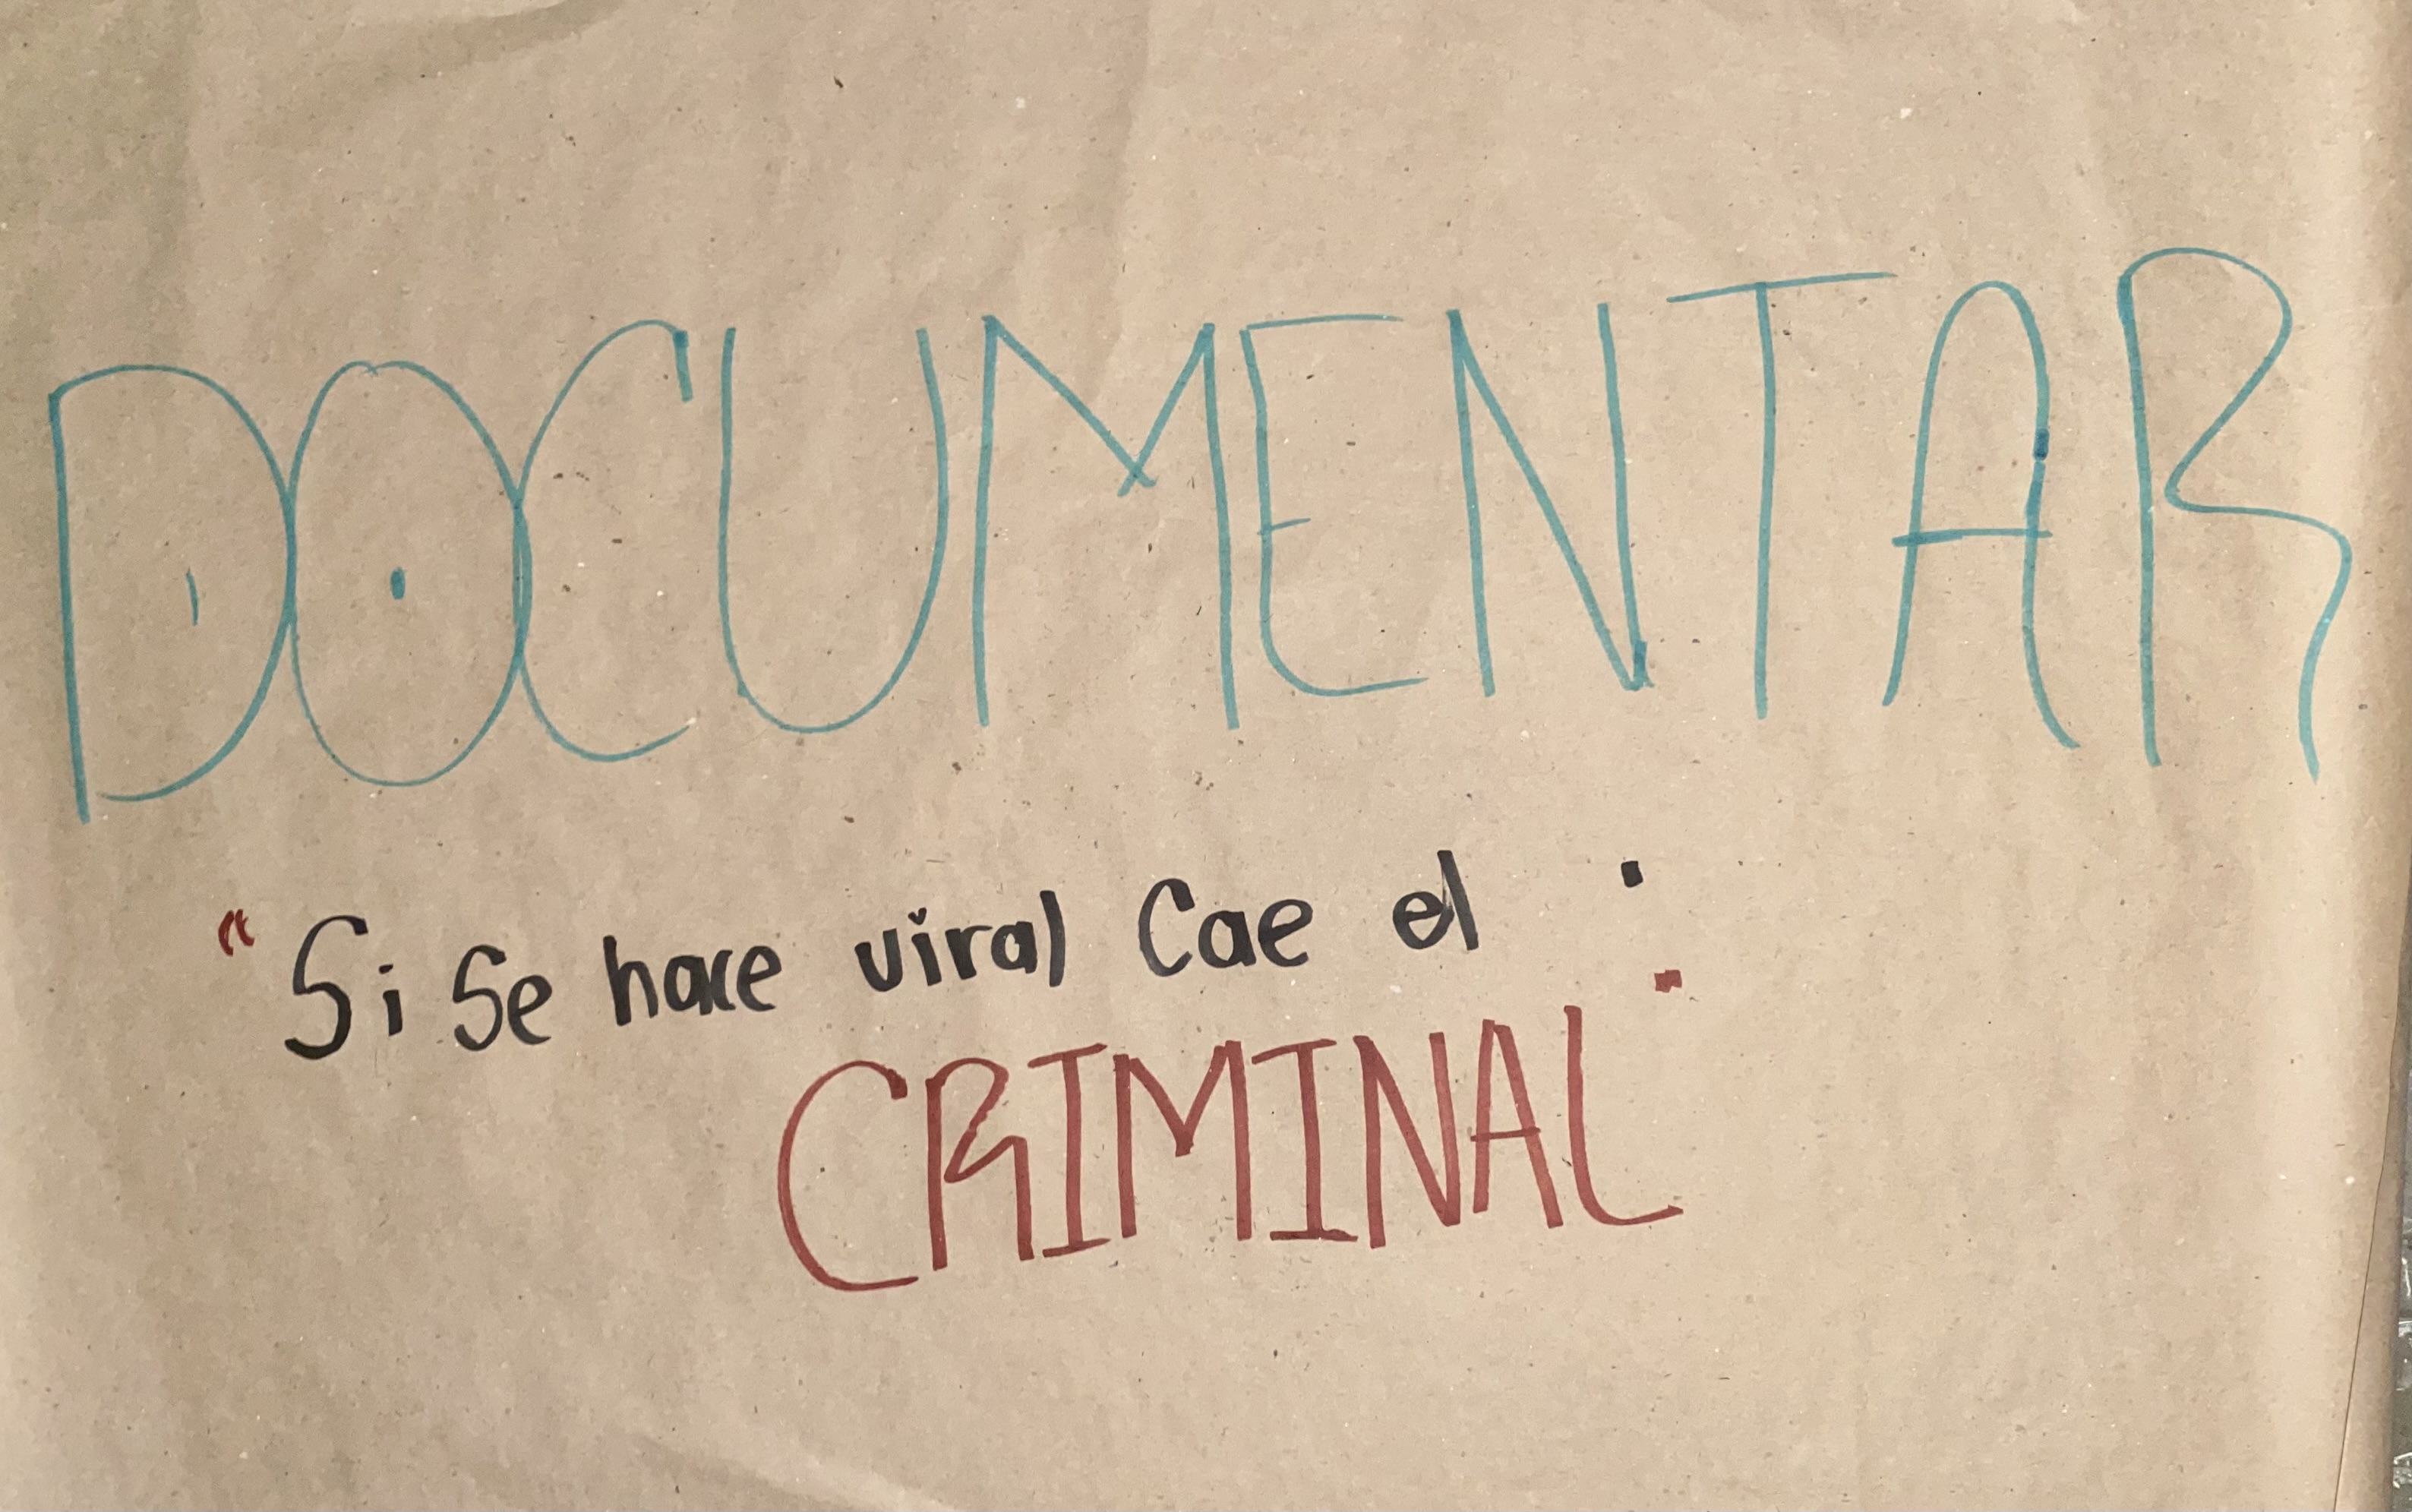 DOCUMENTAR
"Si Se hace viral Cae el
CRIMINAL